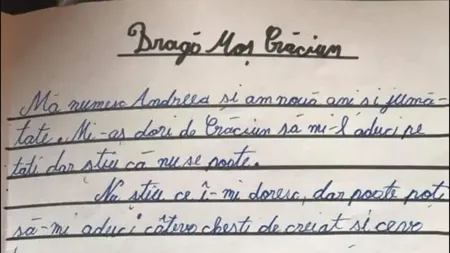 Dragă Moș Crăciun
Mă numesc Andreea și am nouă ani și jumă-
tate. Mi-aș dori de Crăciun să mi-l aduci pe
tati dar știu că nu se poate.
Nu știu ce î-mi doresc, dar poate poți
să-mi aduci câteva chesti de creiat si ceva